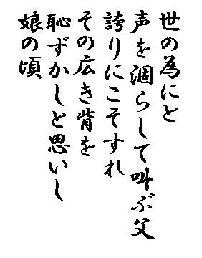 世の為にと
声を涸らして叫ぶ父
誇りにこそすれ
その広き背を
恥ずかしと思いし
娘の頃